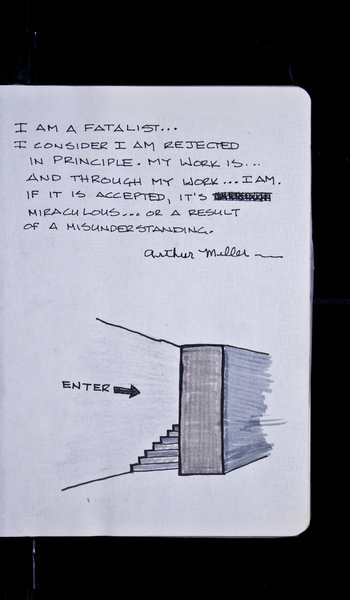 I AM A FATALIST...
I CONSIDER I AM REJECTED
IN PRINCIPLE. MY WORK IS...
AND THROUGH MY WORK... I AM.
IF IT IS ACCEPTED, IT'S
MIRACULOUS... OR A RESULT
OF A MISUNDERSTANDING.
Arthur Miller
ENTER